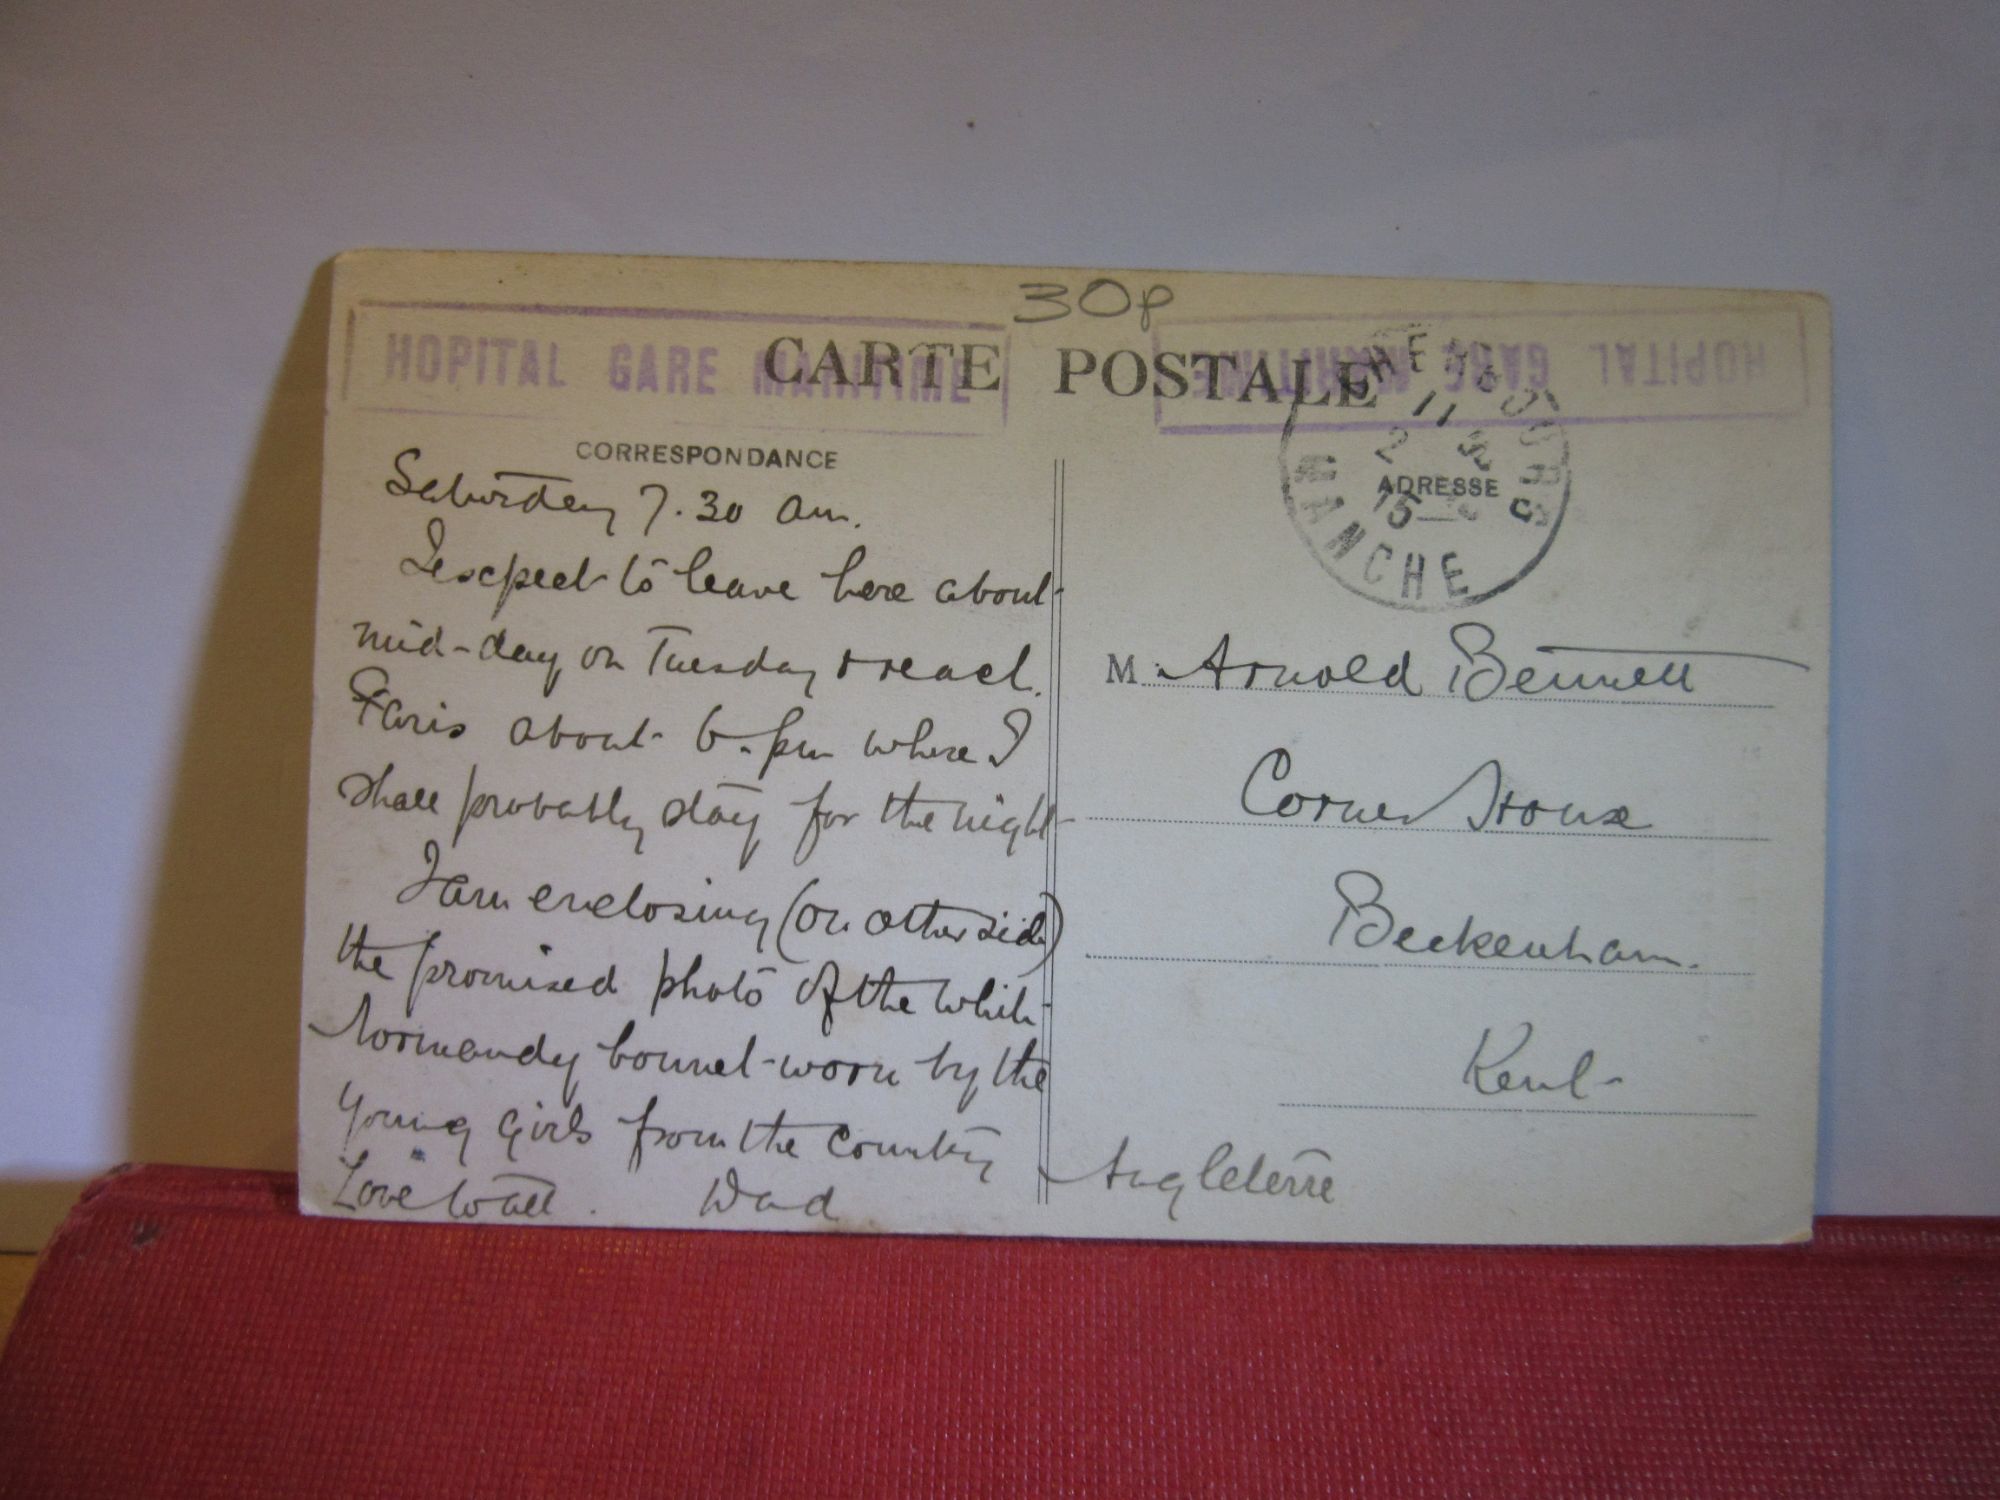 30p
HOPITAL GARE MARITIME
HOPITAL GARE MARITIME
CARTE POSTALE
CORRESPONDANCE
ADRESSE
CHERBOURG
11
2
15
MANCHE
Saturday 7.30 am.
I expect to leave here about
mid-day on Tuesday & reach
Paris about 6.pm where I
shall probably stay for the night
I am enclosing (on other side)
the promised photo of the white
Normandy bonnet worn by the
young girls from the country
Love to all. Dad
M. Arnold Bennett
Corner House
Beckenham.
Kent
Angleterre